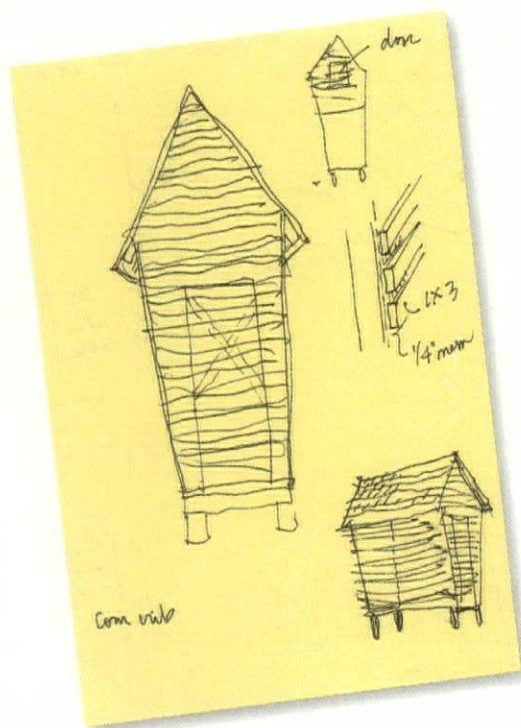 door
1x3
1/4" mesh
Corn crib